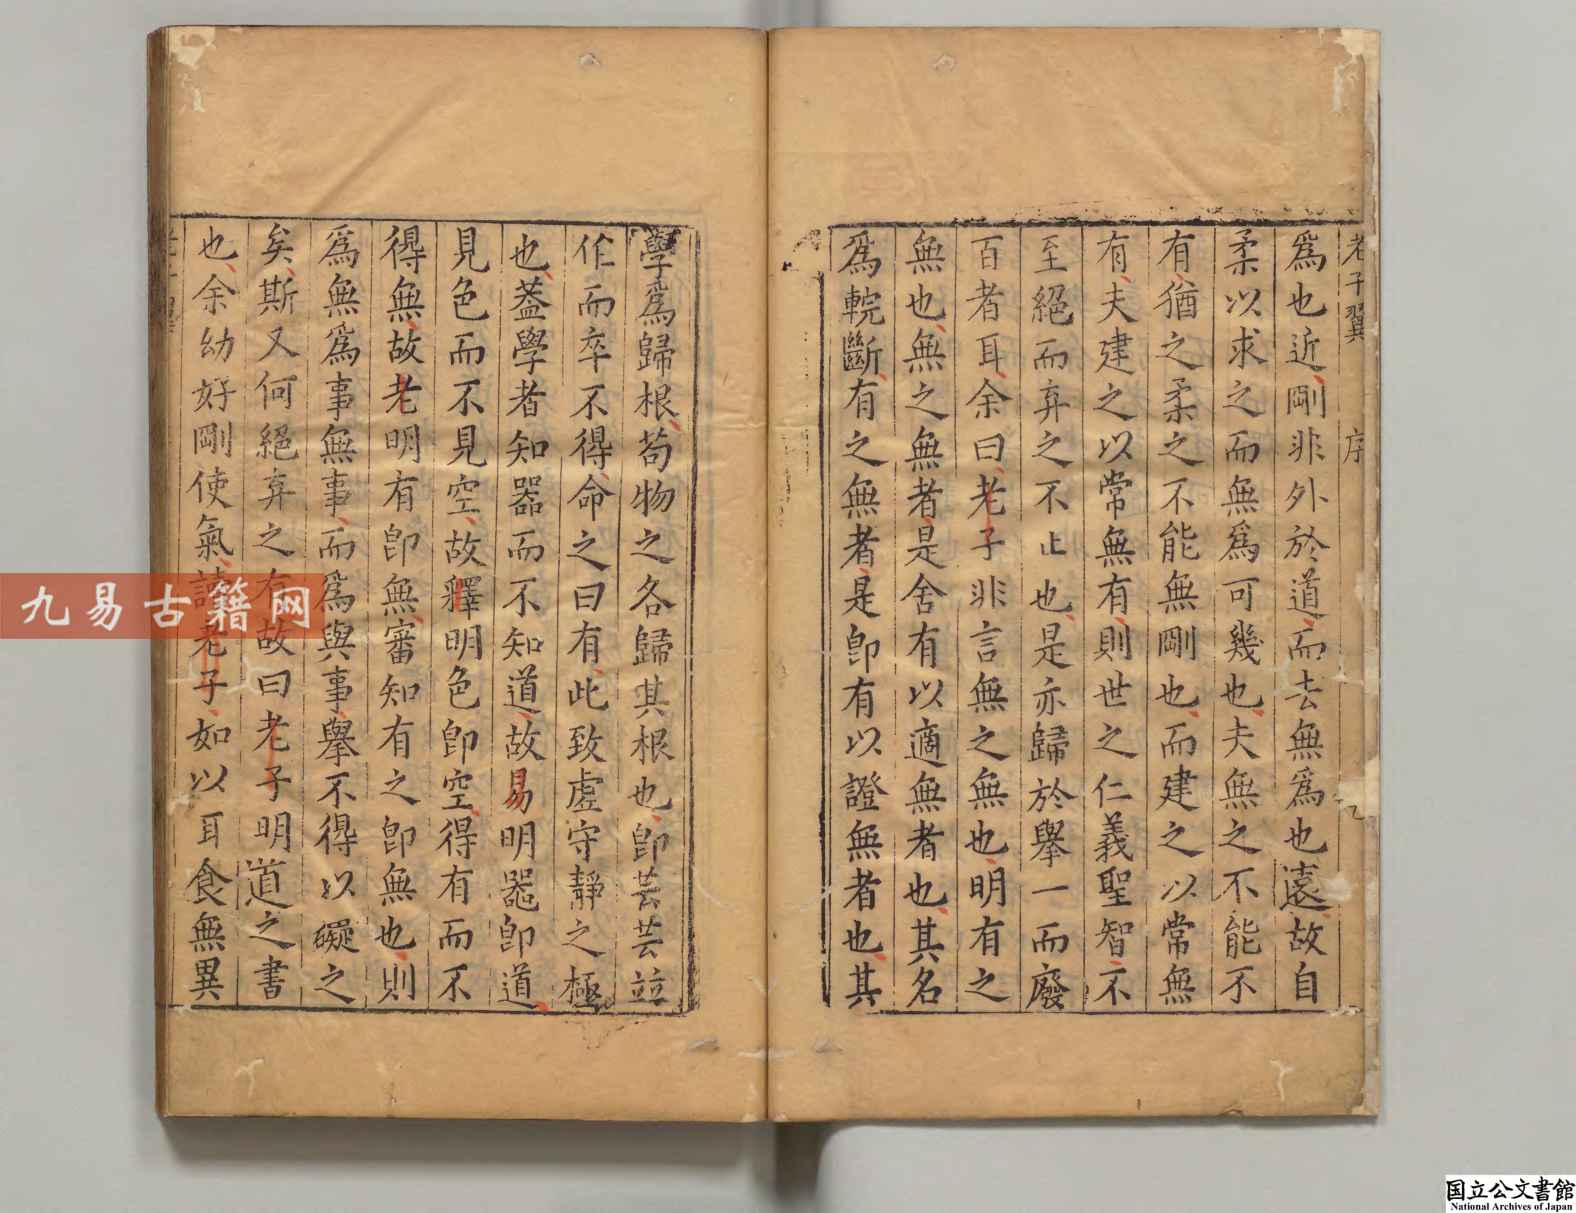 老子翼 序
為也近剛非外於道而去無為也遠故自
柔以求之而無為可幾也夫無之不能不
有猶之柔之不能無剛也而建之以常無
有夫建之以常無有則世之仁義聖智不
至絕而弃之不止也是亦歸於舉一而廢
百者耳余曰老子非言無之無也明有之
無也無之無者是舍有以適無者也其名
為輐斷有之無者是卽有以證無者也其
學為歸根苟物之各歸其根也卽芸芸竝
作而卒不得命之曰有此致虛守靜之極
也葢學者知器而不知道故易明器卽道
見色而不見空故釋明色卽空得有而不
得無故老明有卽無審知有之卽無也則
為無為事無事而為與事舉不得以礙之
矣斯又何絕弃之有故曰老子明道之書
也余幼好剛使氣讀老子如以耳食無異
九易古籍网
国立公文書館
National Archives of Japan